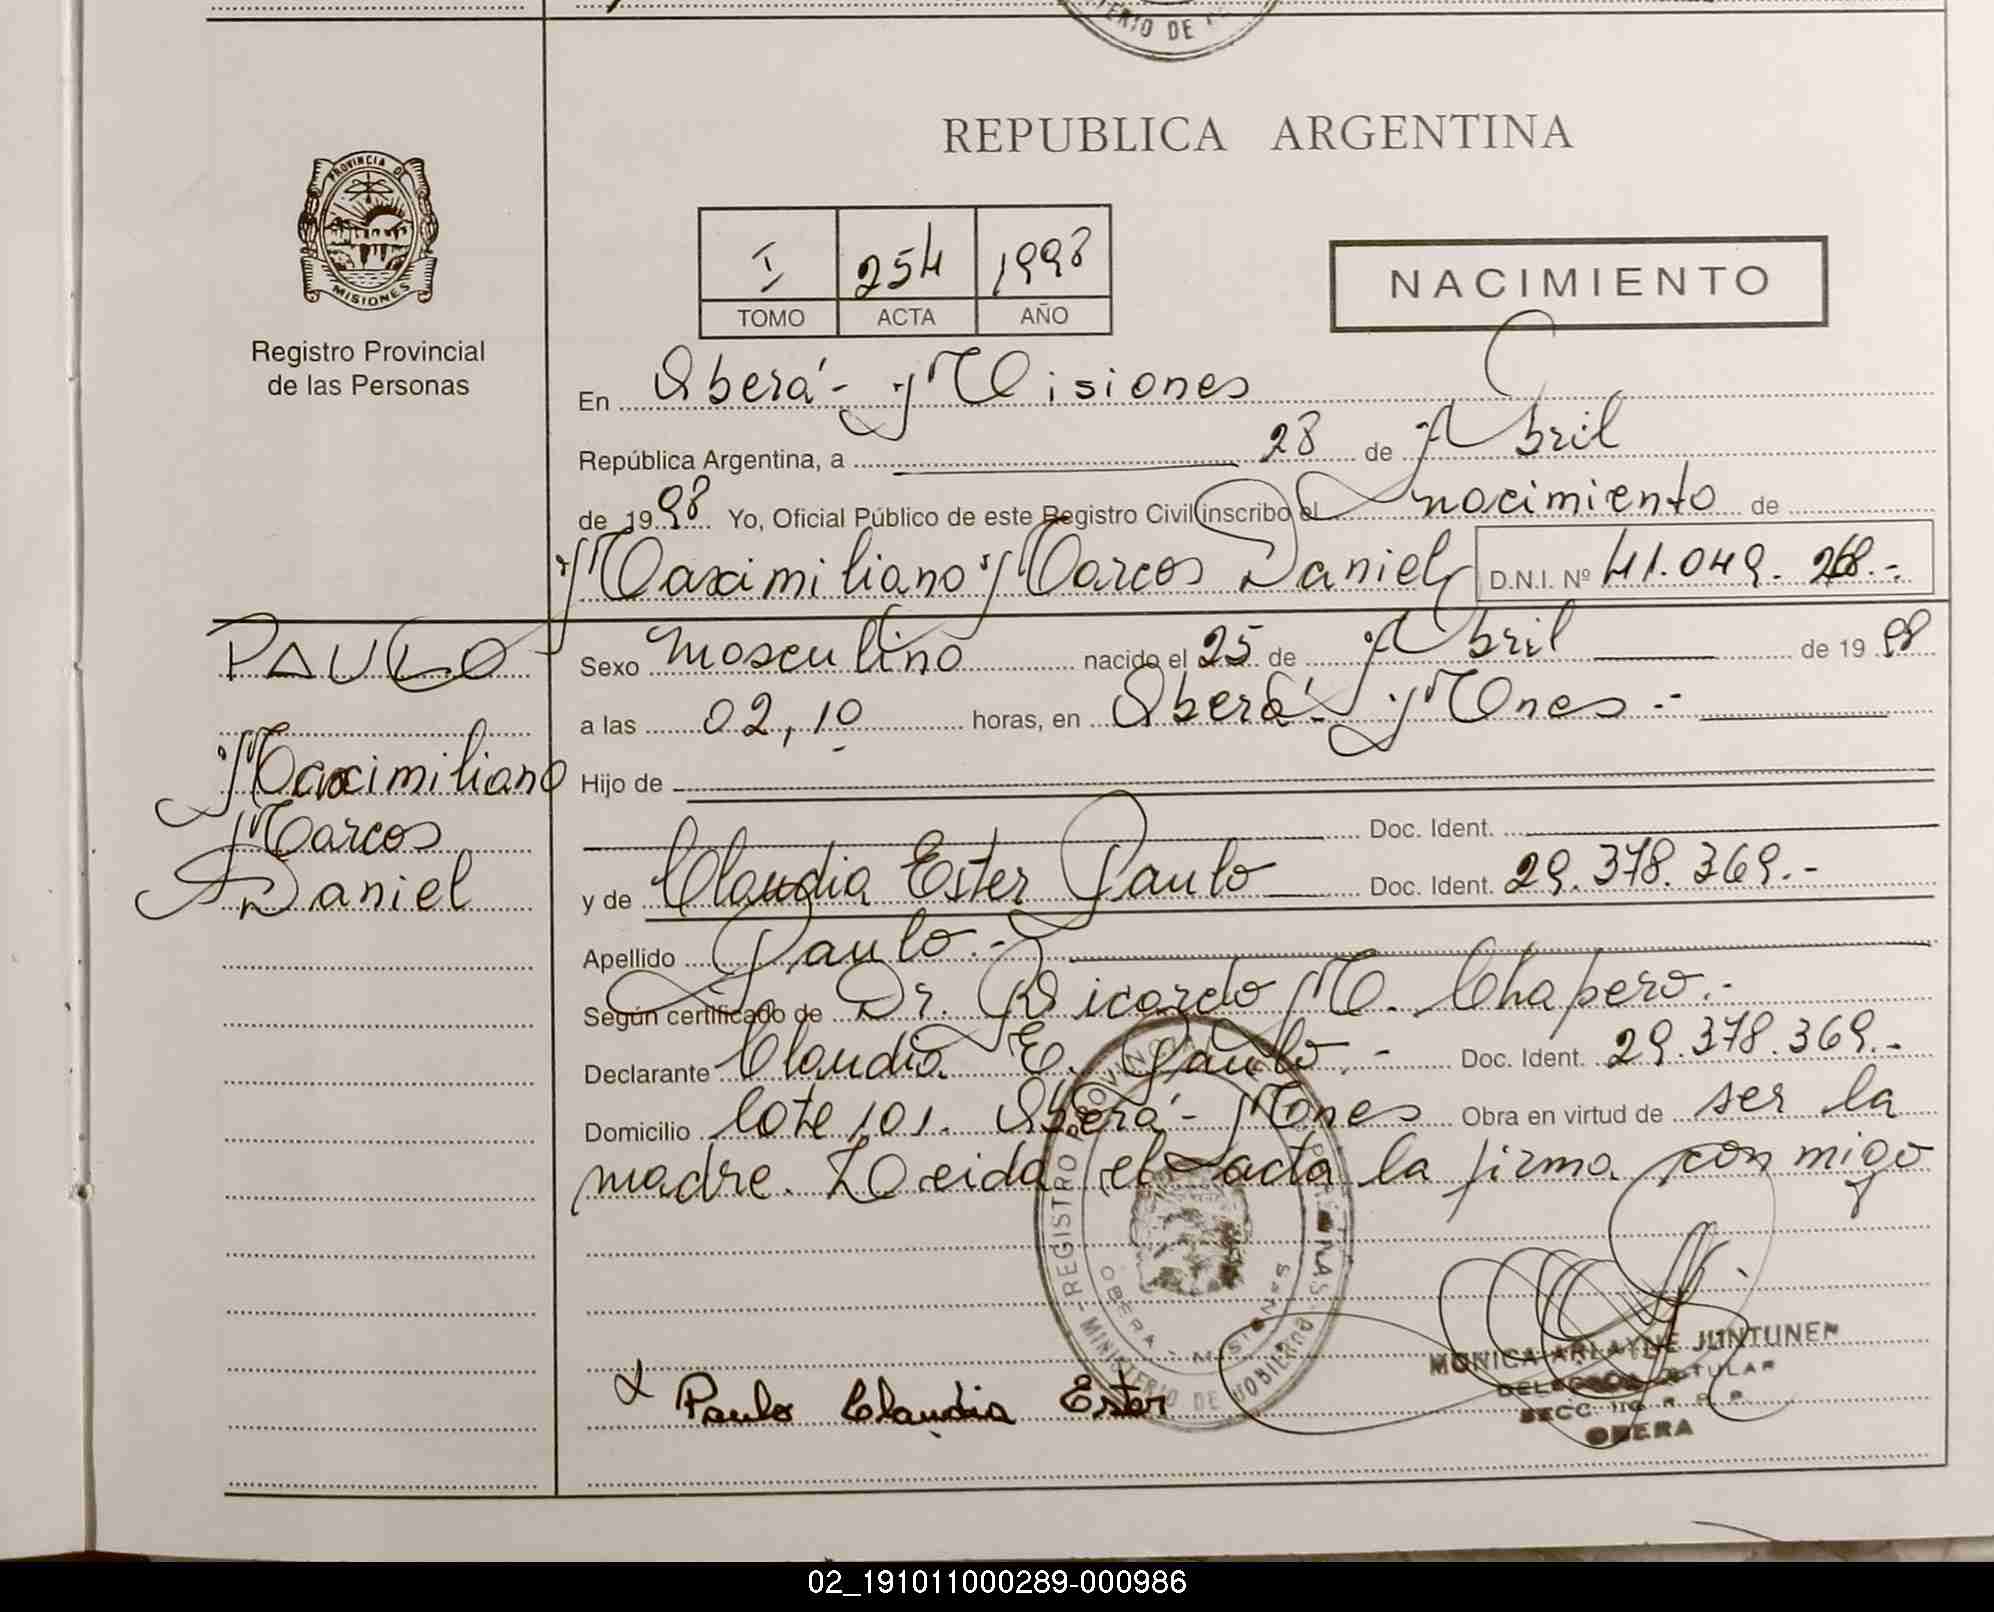 TERIO DE
REPUBLICA ARGENTINA
PROVINCIA DE
MISIONES
Registro Provincial
de las Personas
I 254 1998
TOMO ACTA AÑO
NACIMIENTO
En Oberá - Misiones
República Argentina, a 28 de Abril
de 1998 Yo, Oficial Público de este Registro Civil inscribo el nacimiento de
Maximiliano Marcos Daniel D.N.I. Nº 41.049.268.-
PAULO
Maximiliano
Marcos
Daniel
Sexo Masculino nacido el 25 de Abril de 1998
a las 02,10 horas, en Oberá - Mnes.-
Hijo de
Doc. Ident.
y de Claudia Ester Paulo Doc. Ident. 29.378.369.-
Apellido Paulo.-
Según certificado de Dr. Ricardo M. Chapero.-
Declarante Claudia E. Paulo.- Doc. Ident. 29.378.369.-
Domicilio lote 101. Oberá - Mnes Obra en virtud de ser la
madre. Leida el acta la firma conmigo
REGISTRO PROVINCIAL
MINISTERIO DE GOBIERNO
OBERA - MISIONES
Paulo Claudia Ester
MONICA ARLAYNE JUNTUNEN
DELEGADA TITULAR
SECC. R. P. P.
OBERA
02_191011000289-000986